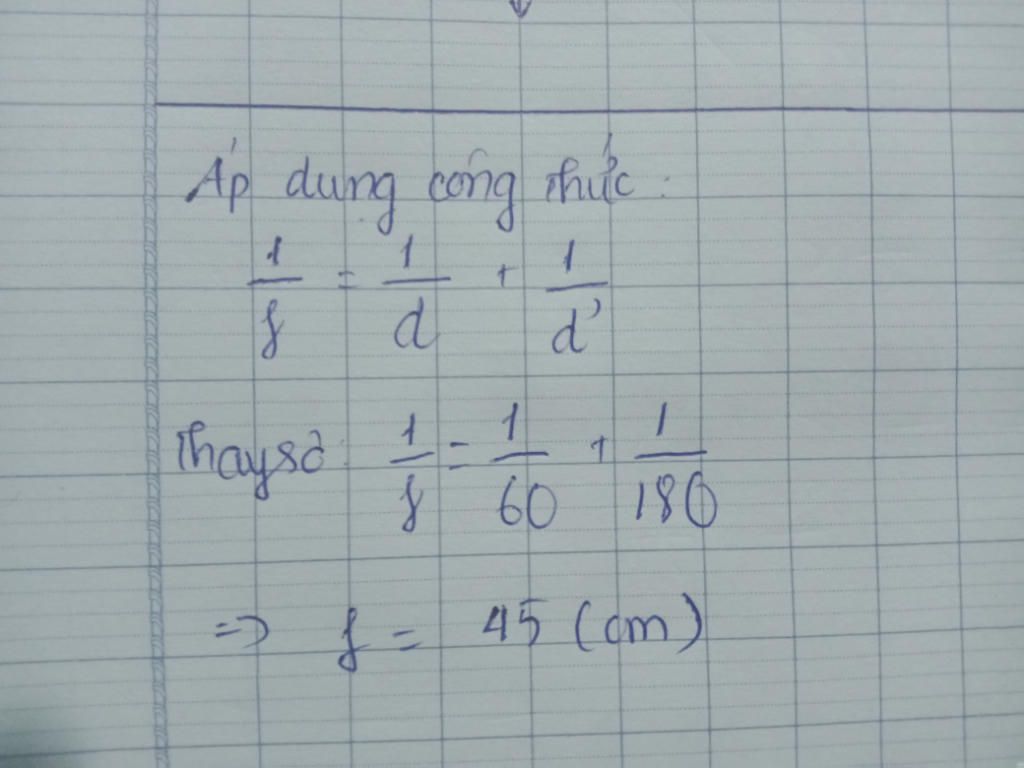 Áp dung công thức:
1/f = 1/d + 1/d'
Thay số: 1/f = 1/60 + 1/180
=> f = 45 (cm)